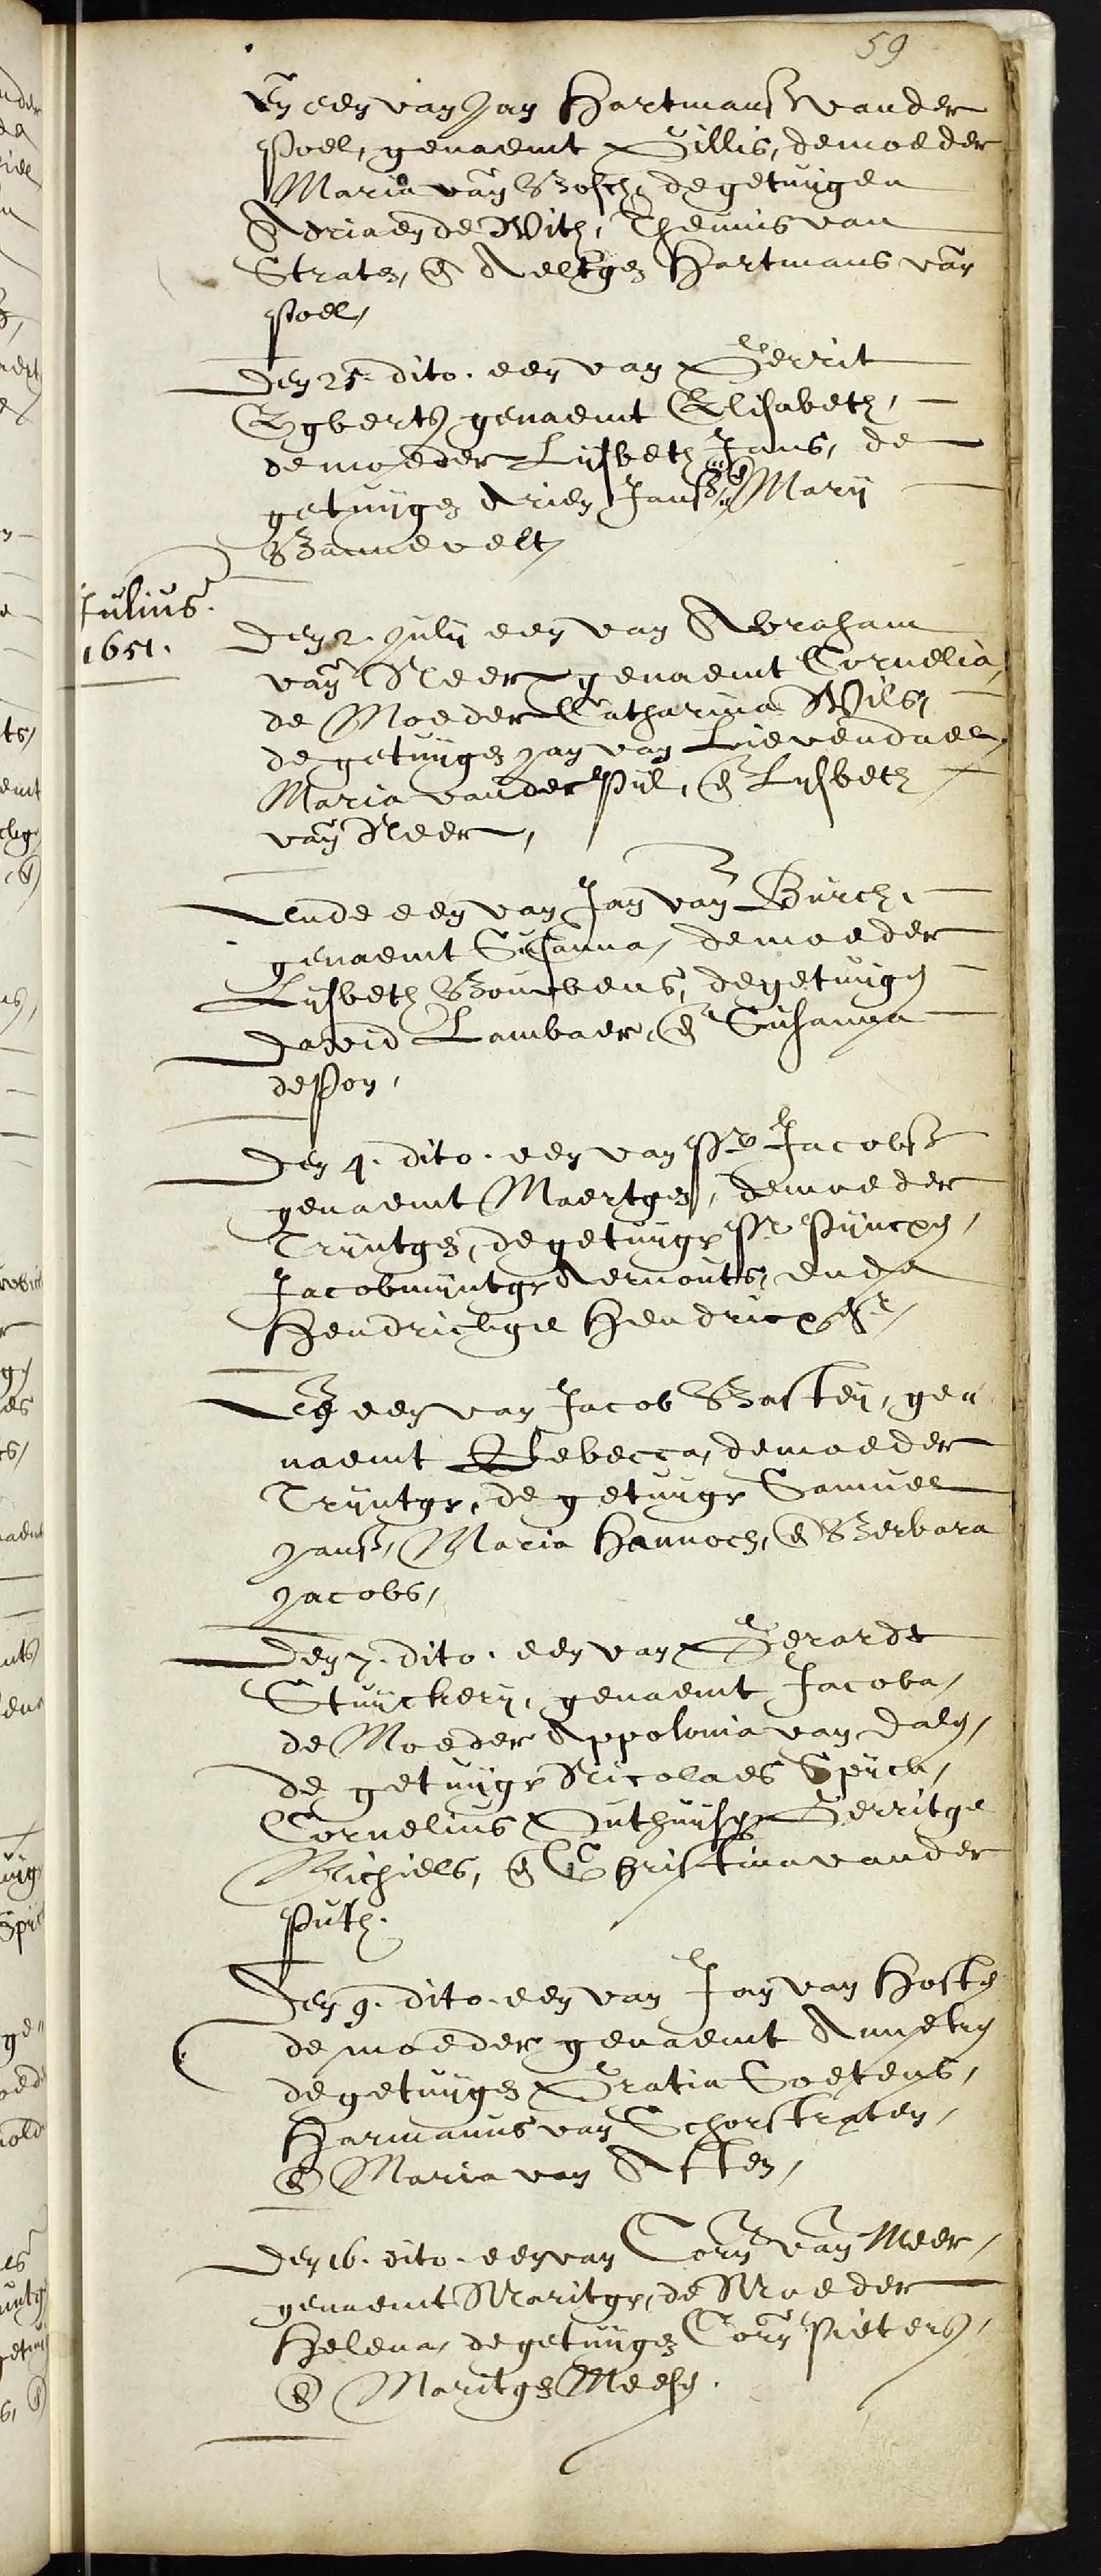 59
En een van Jan Hartmanss vander
Poel, genaemt Gillis, de moeder
Maria van Bosch, de getuijgen
Adriaen de With, Theunis van
Straten, en Aeltgen Hartmans van
Poel,
Den 25. dito. een van Gerrit
Egberts genaemt Elisabeth,
de moeder Lijsbeth Jans, de
getuijgen Arien Janss, en Marij
Barnevelt,
Julius.
1651.
Den 2. Julij een van Abraham
van Neer genaemt Cornelia,
de Moeder Catharina Wils,
de getuijgen Jan van Lievendael,
Maria vander Pijl, en Lijsbeth
van Neer,
Ende een van Jan van Burch,
genaemt Susanna, de moeder
Lijsbeth Bouvbens, de getuijgen
David Lambaer, en Susanna
de Pon,
Den 4. dito. een van Pr Jacobss
genaemt Maertgen, de moeder
Trijntgen, de getuijgen Pr Pijncxen,
Jacobmijntge Aernouts, ende
Hendrickge Hendricxsr,
En een van Jacob Bastey, ge
naemt Rebecca, de moeder
Trijntge, de getuijge Samuel
Janss, Maria Hannoch, en Berbara
Jacobs,
Den 7. dito. een van Gerardt
Stuijckerij, genaemt Jacoba,
de Moeder Appolonia van Dalen,
de getuijge Nicolaes Spijck,
Cornelius Outhuijsen Gerritge
Michiels, en Christina vander
Puth.
Den 9. dito. een van Jan van Hosten
de moeder genaemt Annetgen
de getuijgen Gratia Soetens,
Harmanus van Schorstraten,
en Maria van Atten,
Den 16. dito. een van Corn van Meer,
genaemt Maritge, de Moeder
Helena, de getuijgen Corn Pieters,
en Maritgen Meesen.